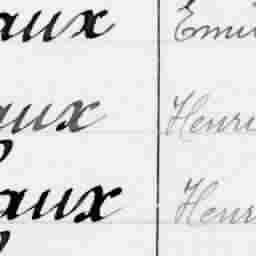 aux Emi
aux Henri
aux Henr